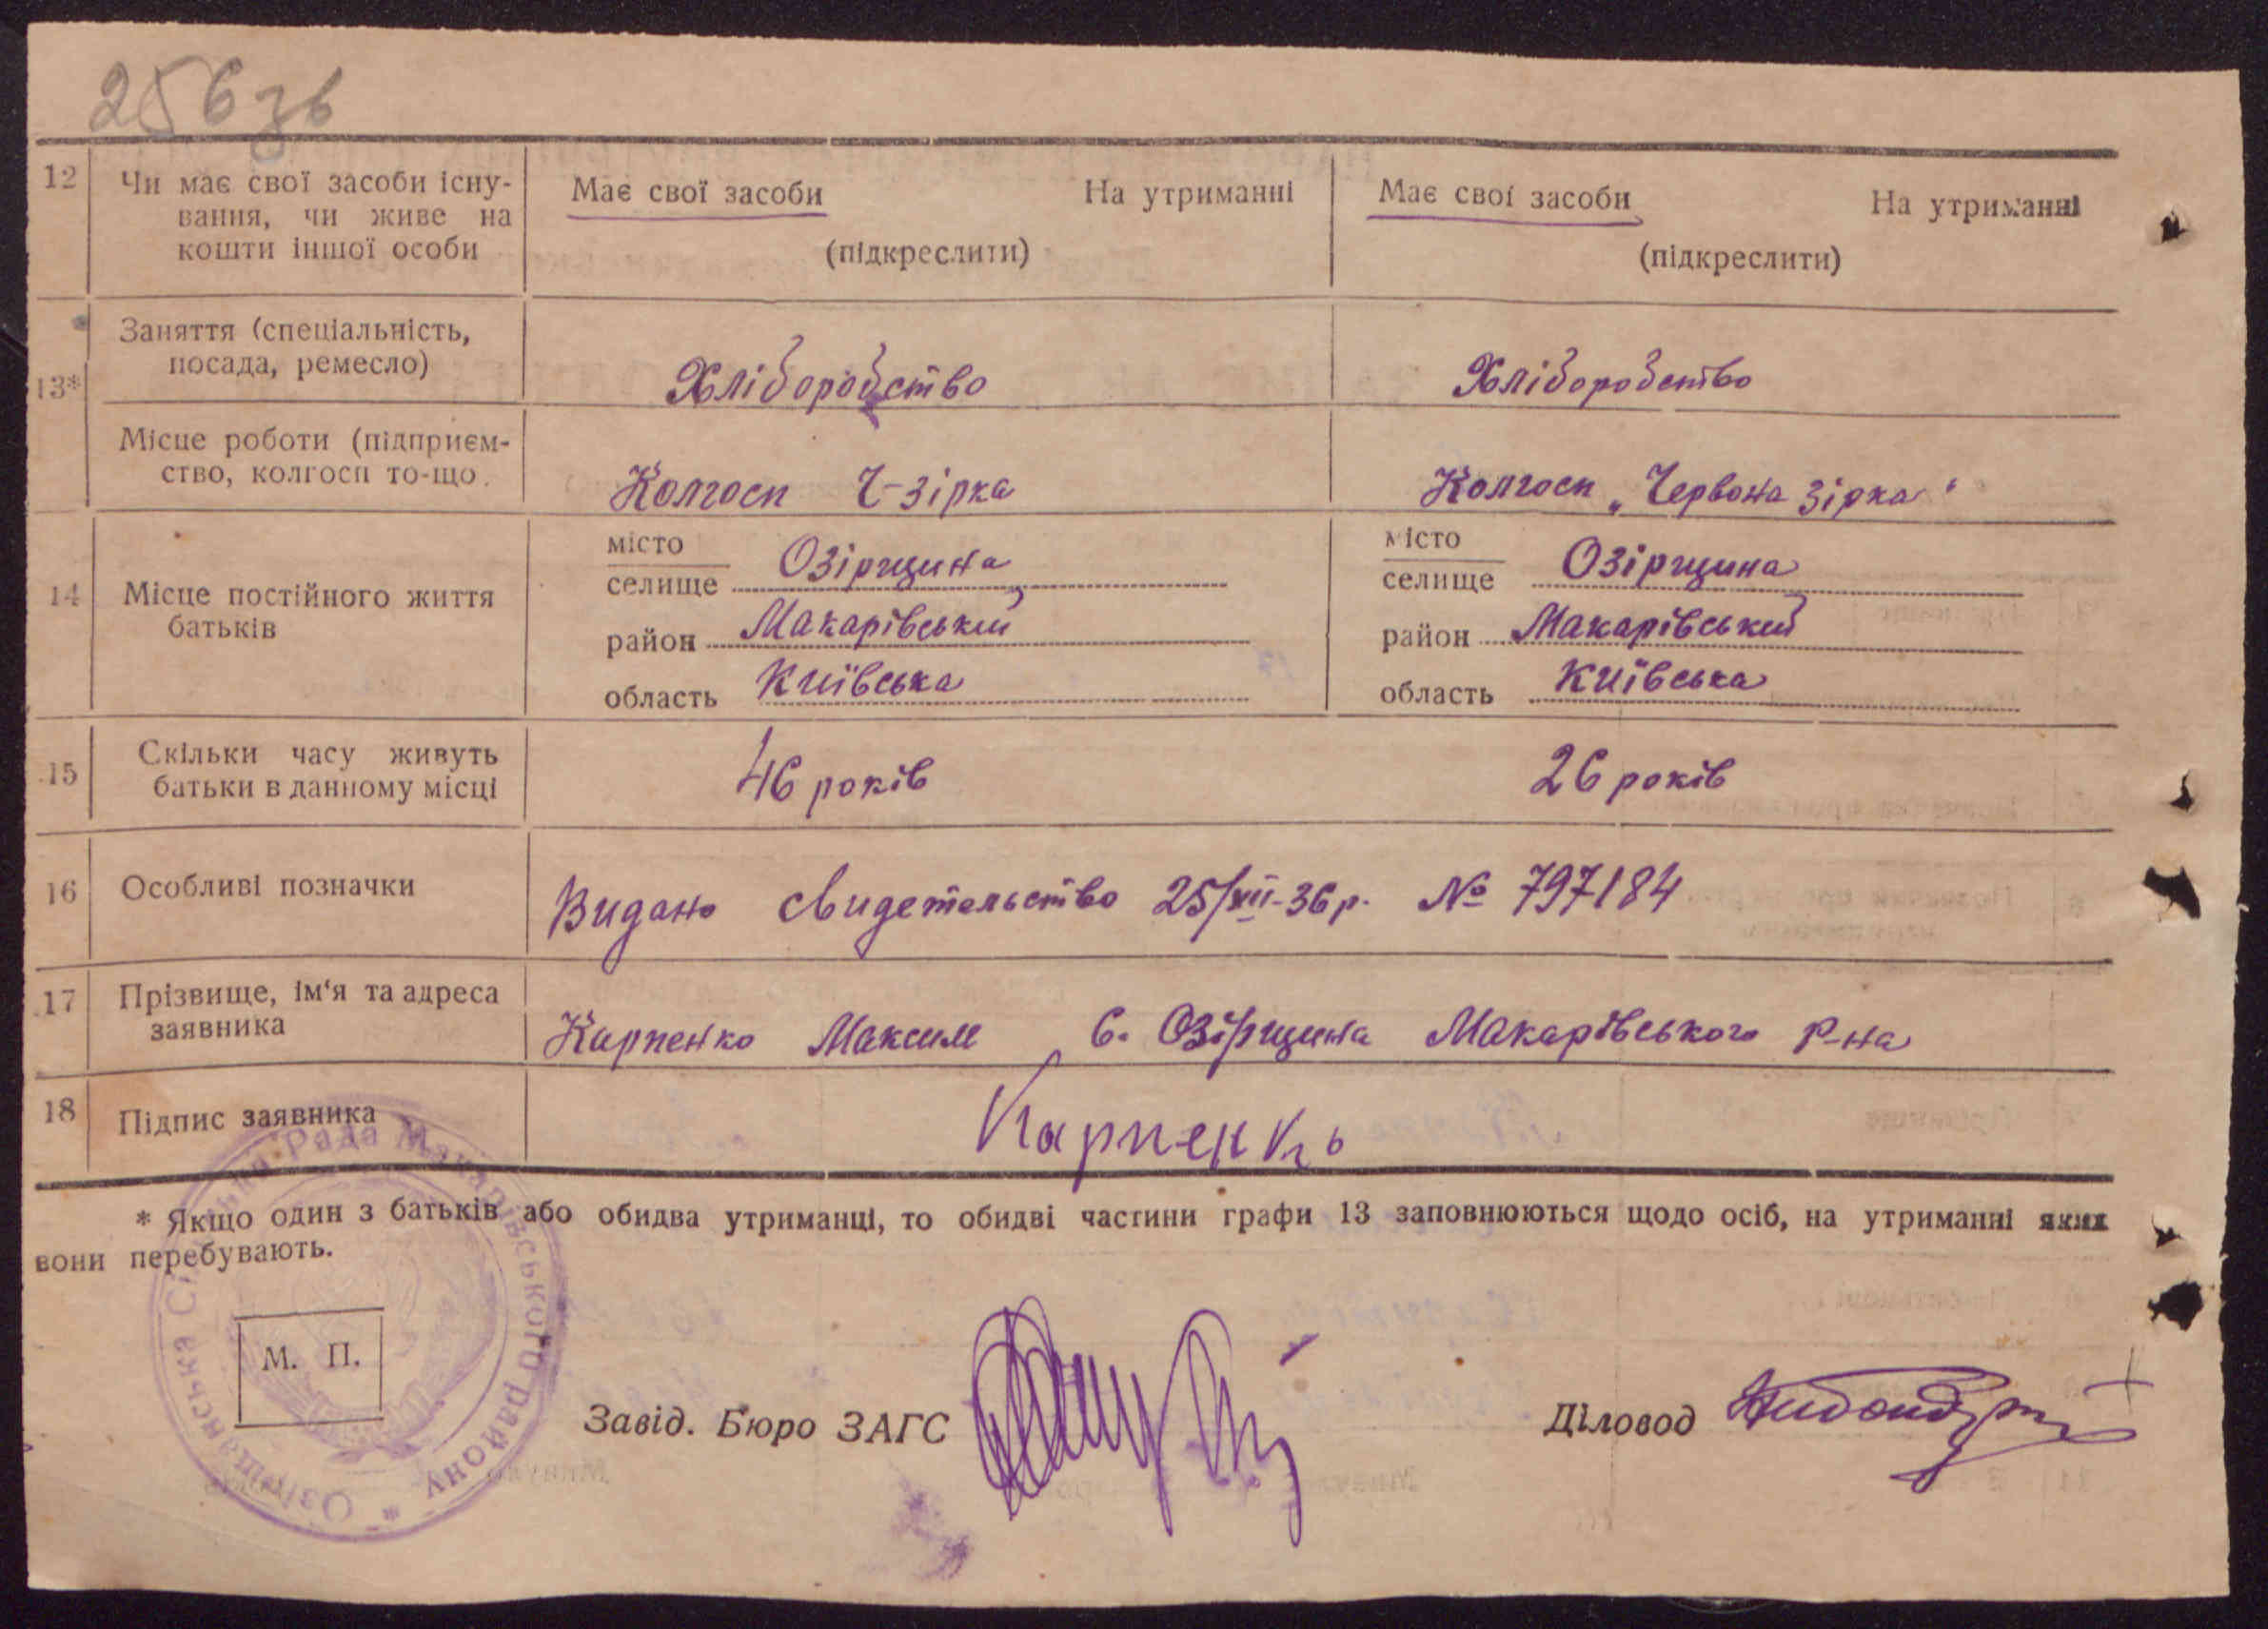 256зв
12 Чи має свої засоби існу- Має свої засоби На утриманні Має свої засоби На утриманні
вання, чи живе на
кошти іншої особи (підкреслити) (підкреслити)
13* Заняття (спеціальність,
посада, ремесло) Хліборобство Хліборобство
Місце роботи (підприєм-
ство, колгосп то-що. Колгосп Ч-зірка Колгосп „Червона Зірка"
14 Місце постійного життя
батьків
місто
селище Озірщина
район Макарівський
область Київська
місто
селище Озірщина
район Макарівський
область Київська
15 Скільки часу живуть
батьки в данному місці 46 років 26 років
16 Особливі позначки Видано свидетельство 25/XII-36р. № 797184
17 Прізвище, ім'я та адреса
заявника Карпенко Максим с. Озірщина Макарівського р-на
18 Підпис заявника Карпенко
* Якщо один з батьків або обидва утриманці, то обидві частини графи 13 заповнюються щодо осіб, на утриманні яких
вони перебувають.
М. П.
Завід. Бюро ЗАГС Діловод
Озірщанська Сільська Рада Макарівського району *